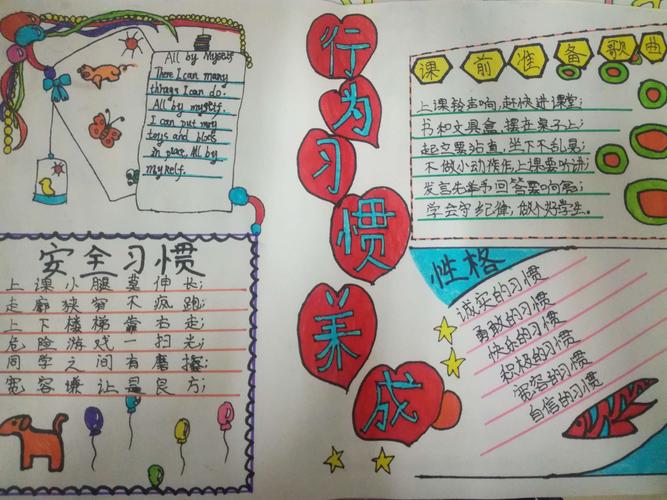 All by Myself
There I can many
things I can do.
All by myself.
I can put my
toys and blocks
in place. All by
myself.
行为习惯养成
课前准备歌曲
上课铃声响,赶快进课堂;
书和文具盒,摆在桌子上;
起立要站直,坐下不乱晃;
不做小动作,上课要听讲;
发言先举手,回答要响亮;
学会守纪律,做个好学生。
安全习惯
上课小腿莫伸长;
走廊狭窄不疯跑;
上下楼梯靠右走;
危险游戏一扫光;
同学之间有磨擦;
宽容谦让是良方;
性格
诚实的习惯
勇敢的习惯
快乐的习惯
积极的习惯
宽容的习惯
自信的习惯